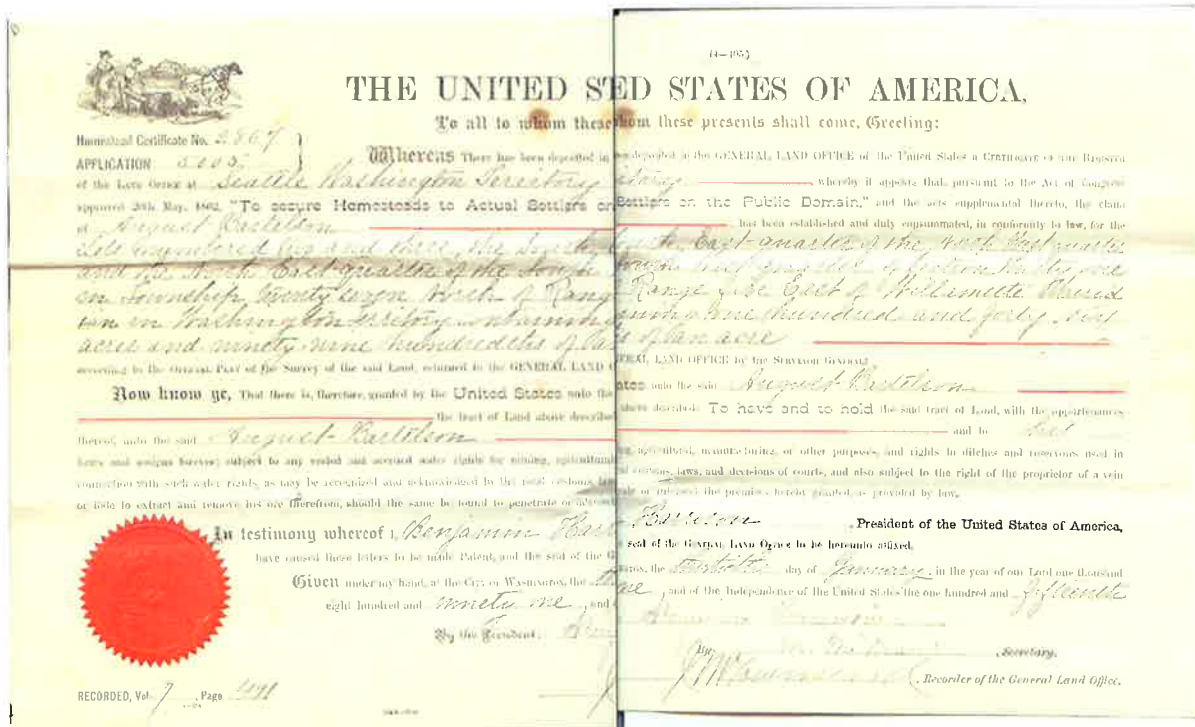 (4—405)
THE UNITED STED STATES OF AMERICA,
To all to whom these hom these presents shall come, Greeting:
Homestead Certificate No. 2867
APPLICATION 5005
Whereas There has been deposited in een deposited in the GENERAL LAND OFFICE of the United States a Certificate of the Register
of the Land Office at Seattle Washington Territory whereby it appears that, pursuant to the Act of Congress
approved 20th May, 1862, "To secure Homesteads to Actual Settlers on Settlers on the Public Domain," and the acts supplemental thereto, the claim
of August Bartelson has been established and duly consummated, in conformity to law, for the
Lots numbered and three, the South South East quarter of the North East quarter
and the North East quarter of the South South East quarter of Section thirty one
in Township twenty seven North of Range Range five East of Willamette Merid
ian in Washington Territory containing one hundred and forty six
acres and ninety nine hundredths of an acre
according to the Official Plat of the Survey of the said Land, returned to the GENERAL LAND GENERAL LAND OFFICE by the Surveyor General:
Now know ye, That there is, therefore, granted by the United States unto the ates unto the said August Bartelson
the tract of Land above described above described: To have and to hold the said tract of Land, with the appurtenances
thereof, unto the said August Bartelson and to his
heirs and assigns forever; subject to any vested and accrued water rights for mining, agricultural g, agricultural, manufacturing, or other purposes, and rights to ditches and reservoirs used in
connection with such water rights, as may be recognized and acknowledged by the local customs, l customs, laws, and decisions of courts, and also subject to the right of the proprietor of a vein
or lode to extract and remove his ore therefrom, should the same be found to penetrate or rate or intersect the premises hereby granted, as provided by law.
In testimony whereof I, Benjamin Harr Harrison , President of the United States of America,
have caused these letters to be made Patent, and the seal of the G seal of the General Land Office to be hereunto affixed.
Given under my hand, at the City of Washington, the , the thirtieth day of January , in the year of our Lord one thousand
eight hundred and ninety one , and , and of the Independence of the United States the one hundred and fifteenth
By the President: Benjamin Harrison
By , Secretary.
, Recorder of the General Land Office.
RECORDED, Vol. 7 , Page 491